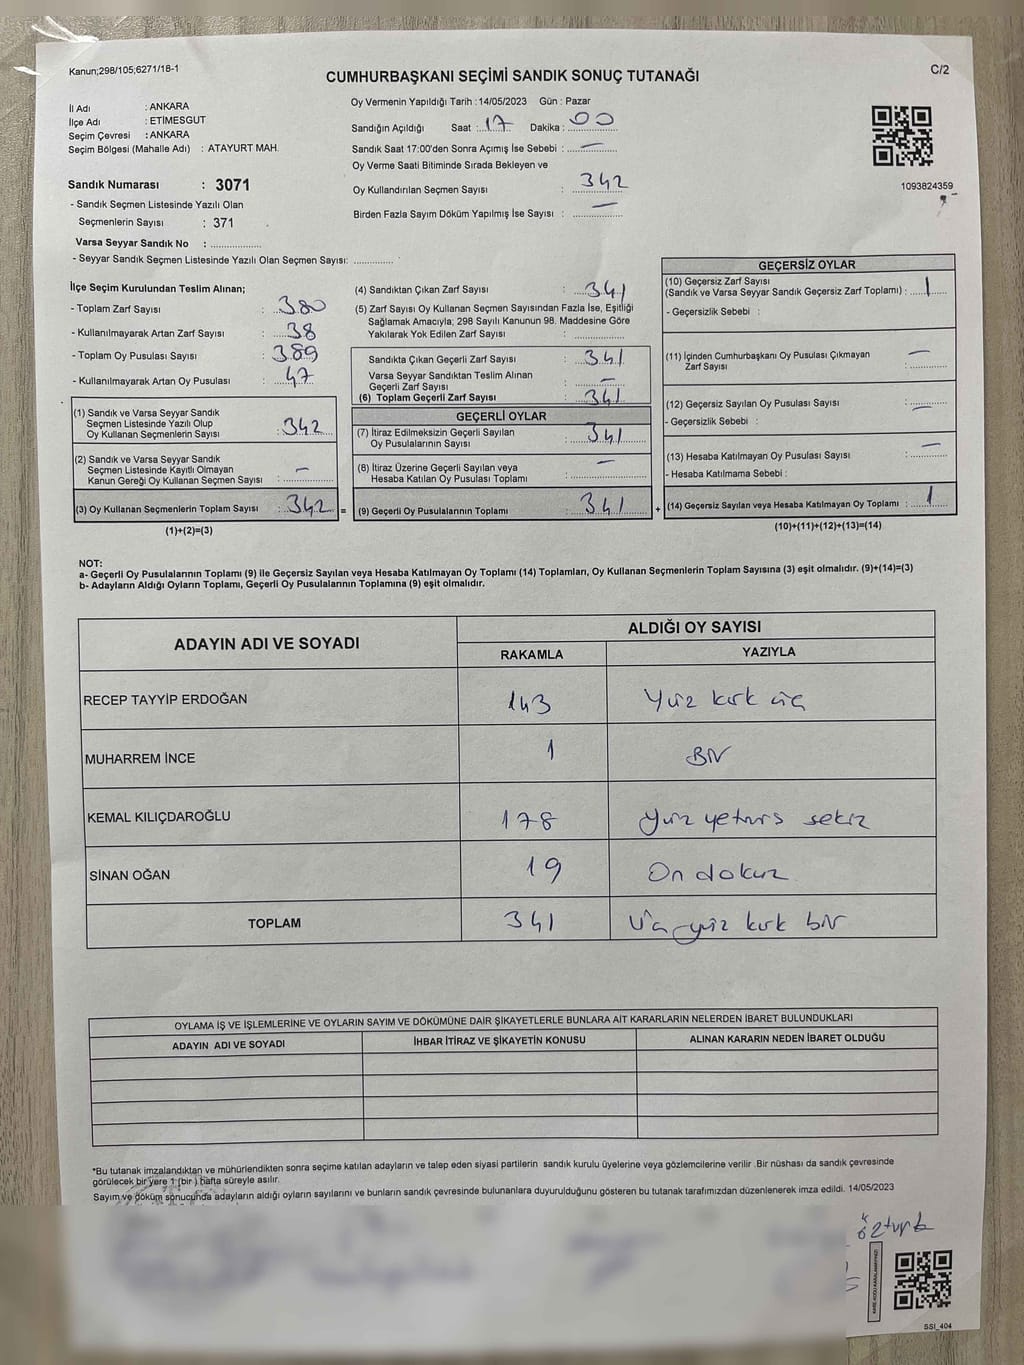 Kanun;298/105;6271/18-1
C/2
CUMHURBAŞKANI SEÇİMİ SANDIK SONUÇ TUTANAĞI
İl Adı : ANKARA
İlçe Adı : ETİMESGUT
Seçim Çevresi : ANKARA
Seçim Bölgesi (Mahalle Adı) : ATAYURT MAH.
Sandık Numarası : 3071
- Sandık Seçmen Listesinde Yazılı Olan
Seçmenlerin Sayısı : 371
Varsa Seyyar Sandık No : ................
- Seyyar Sandık Seçmen Listesinde Yazılı Olan Seçmen Sayısı: .............
Oy Vermenin Yapıldığı Tarih :14/05/2023 Gün : Pazar
Sandığın Açıldığı Saat : 17 Dakika : 00
Sandık Saat 17:00'den Sonra Açımış İse Sebebi : —
Oy Verme Saati Bitiminde Sırada Bekleyen ve
Oy Kullandırılan Seçmen Sayısı : 342
Birden Fazla Sayım Döküm Yapılmış İse Sayısı : —
1093824359
İlçe Seçim Kurulundan Teslim Alınan;
- Toplam Zarf Sayısı : 380
- Kullanılmayarak Artan Zarf Sayısı : 38
- Toplam Oy Pusulası Sayısı : 389
- Kullanılmayarak Artan Oy Pusulası : 47
(1) Sandık ve Varsa Seyyar Sandık
Seçmen Listesinde Yazılı Olup
Oy Kullanan Seçmenlerin Sayısı : 342
(2) Sandık ve Varsa Seyyar Sandık
Seçmen Listesinde Kayıtlı Olmayan
Kanun Gereği Oy Kullanan Seçmen Sayısı : —
(3) Oy Kullanan Seçmenlerin Toplam Sayısı : 342 =
(1)+(2)=(3)
(4) Sandıktan Çıkan Zarf Sayısı : 341
(5) Zarf Sayısı Oy Kullanan Seçmen Sayısından Fazla İse, Eşitliği
Sağlamak Amacıyla; 298 Sayılı Kanunun 98. Maddesine Göre
Yakılarak Yok Edilen Zarf Sayısı : ................
Sandıkta Çıkan Geçerli Zarf Sayısı : 341
Varsa Seyyar Sandıktan Teslim Alınan
Geçerli Zarf Sayısı : —
(6) Toplam Geçerli Zarf Sayısı : 341
GEÇERLİ OYLAR
(7) İtiraz Edilmeksizin Geçerli Sayılan
Oy Pusulalarının Sayısı : 341
(8) İtiraz Üzerine Geçerli Sayılan veya
Hesaba Katılan Oy Pusulası Toplamı : —
(9) Geçerli Oy Pusulalarının Toplamı : 341 +
GEÇERSİZ OYLAR
(10) Geçersiz Zarf Sayısı
(Sandık ve Varsa Seyyar Sandık Geçersiz Zarf Toplamı) : 1
- Geçersizlik Sebebi :
(11) İçinden Cumhurbaşkanı Oy Pusulası Çıkmayan
Zarf Sayısı : —
(12) Geçersiz Sayılan Oy Pusulası Sayısı : —
- Geçersizlik Sebebi :
(13) Hesaba Katılmayan Oy Pusulası Sayısı : —
- Hesaba Katılmama Sebebi :
(14) Geçersiz Sayılan veya Hesaba Katılmayan Oy Toplamı : 1
(10)+(11)+(12)+(13)=(14)
NOT:
a- Geçerli Oy Pusulalarının Toplamı (9) ile Geçersiz Sayılan veya Hesaba Katılmayan Oy Toplamı (14) Toplamları, Oy Kullanan Seçmenlerin Toplam Sayısına (3) eşit olmalıdır. (9)+(14)=(3)
b- Adayların Aldığı Oyların Toplamı, Geçerli Oy Pusulalarının Toplamına (9) eşit olmalıdır.
ADAYIN ADI VE SOYADI ALDIĞI OY SAYISI
RAKAMLA YAZIYLA
RECEP TAYYİP ERDOĞAN 143 Yüz kırk üç
MUHARREM İNCE 1 Bir
KEMAL KILIÇDAROĞLU 178 Yüz yetmiş sekiz
SİNAN OĞAN 19 On dokuz
TOPLAM 341 Üç yüz kırk bir
OYLAMA İŞ VE İŞLEMLERİNE VE OYLARIN SAYIM VE DÖKÜMÜNE DAİR ŞİKAYETLERLE BUNLARA AİT KARARLARIN NELERDEN İBARET BULUNDUKLARI
ADAYIN ADI VE SOYADI İHBAR İTİRAZ VE ŞİKAYETİN KONUSU ALINAN KARARIN NEDEN İBARET OLDUĞU
*Bu tutanak imzalandıktan ve mühürlendikten sonra seçime katılan adayların ve talep eden siyasi partilerin sandık kurulu üyelerine veya gözlemcilerine verilir .Bir nüshası da sandık çevresinde
görülecek bir yere 1 (bir ) hafta süreyle asılır.
Sayım ve döküm sonucunda adayların aldığı oyların sayılarını ve bunların sandık çevresinde bulunanlara duyurulduğunu gösteren bu tutanak tarafımızdan düzenlenerek imza edildi. 14/05/2023
SSI_404